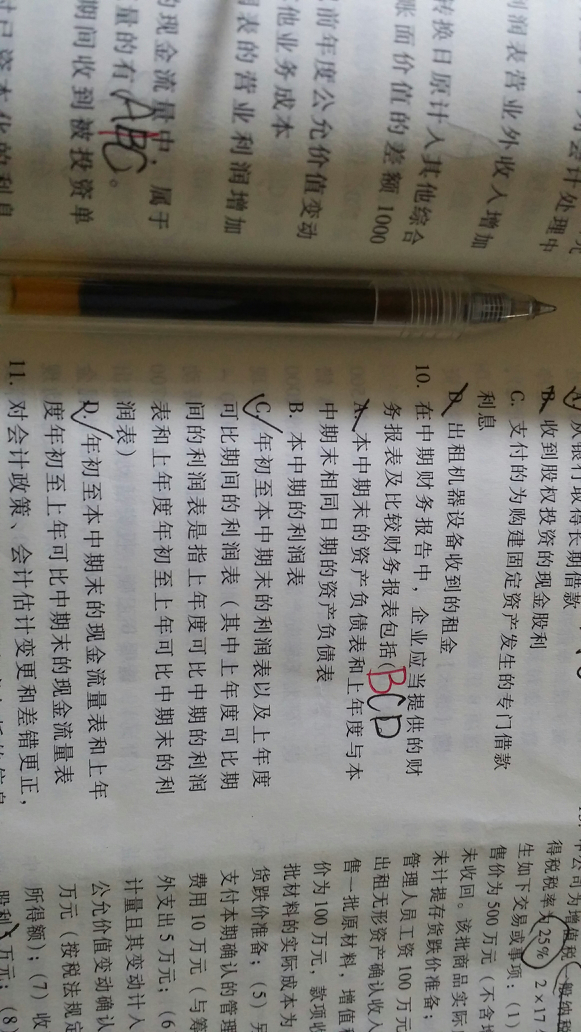 会计处理中
利润表营业外收入增加
转换日原计入其他综合
账面价值的差额1000
前年度公允价值变动
他业务成本
表的营业利润增加
的现金流量中，属于
量的有ABC。
期间收到被投资单
从银行取得长期借款
B. 收到股权投资的现金股利
C. 支付的为购建固定资产发生的专门借款
利息
D. 出租机器设备收到的租金
10. 在中期财务报告中，企业应当提供的财
务报表及比较财务报表包括(BCD
A. 本中期末的资产负债表和上年度与本
中期末相同日期的资产负债表
B. 本中期的利润表
C. 年初至本中期末的利润表以及上年度
可比期间的利润表（其中上年度可比期
间的利润表是指上年度可比中期的利润
表和上年度年初至上年可比中期末的利
润表）
D. 年初至本中期末的现金流量表和上年
度年初至上年可比中期末的现金流量表
11. 对会计政策、会计估计变更和差错更正，
公司为增值税一般纳税
得税税率25% 2×17
生如下交易或事项：(1)
售价为500万元（不含
未收回。该批商品实际
未计提存货跌价准备；
管理人员工资100万元
出租无形资产确认收入
售一批原材料，增值税
价为100万元，款项收
批材料的实际成本为
货跌价准备；(5)
支付本期确认的管理
费用10万元（与筹
外支出5万元；(6
计量且其变动计入
公允价值变动确认
万元（按税法规定
所得额）；(7)收
股利5万元；(8)